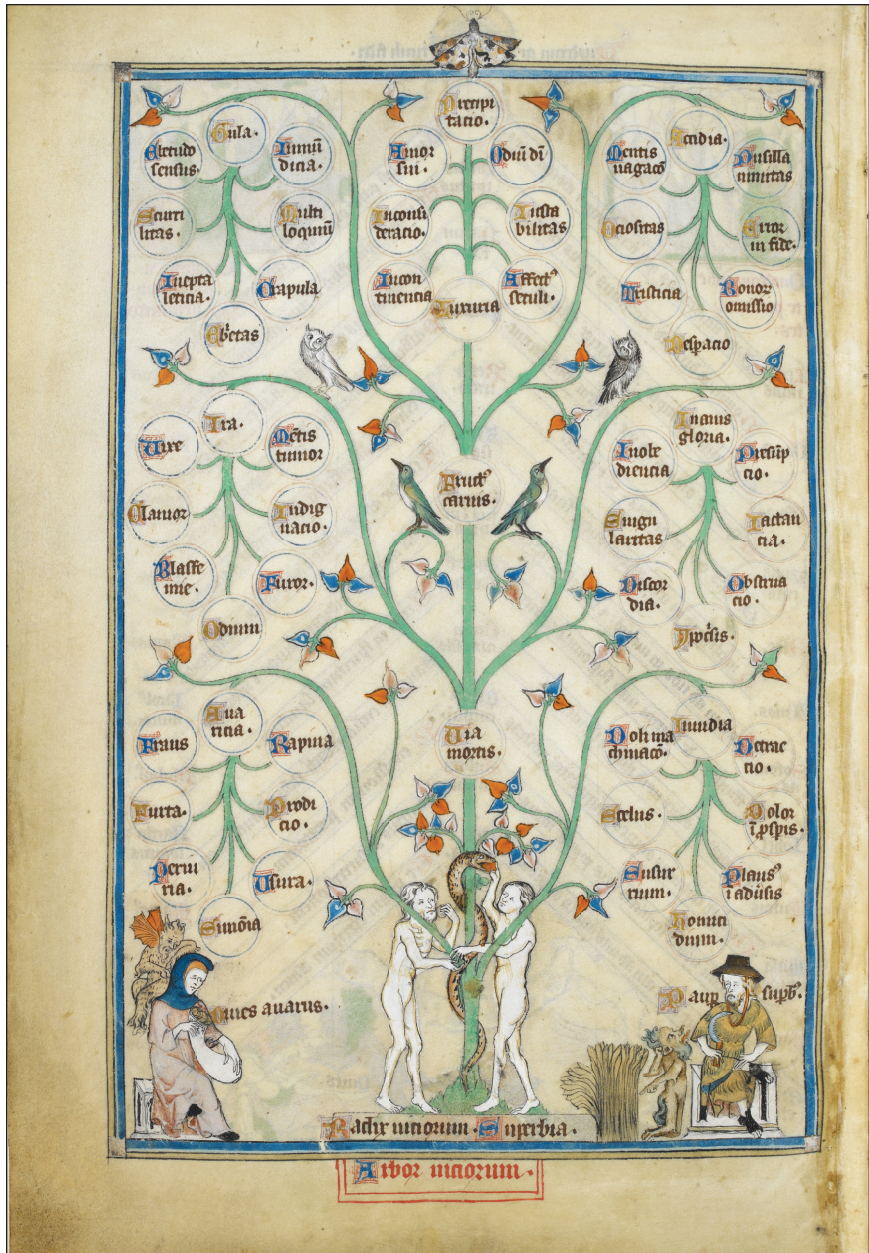 Gula.
Ebetudo
sensus.
Inmū
dicia.
Scurri
litas.
Multi
loquiū
Inepta
leticia.
Crapula
Ebˀetas
Precipi
tacio.
Amor
sui.
Odiū dī
Inconsi
deracio.
Incsta
bilitas
Incon
tinencia
Affectꝰ
seculi.
Luxuria
Accidia.
Mentis
uagacō
Pusilla
nimitas
Ociositas
Error
in fide.
Tristicia
Bonoꝝ
omissio
Despacio
Ira.
Rixe
Mētis
tumor
Clamor
Indig
nacio.
Blasfe
mie.
Furor.
Odium
Fructꝰ
carnis.
Inanis
gloria.
Inobe
diencia
Presūp
cio.
Singu
laritas
Iactan
cia.
Discor
dia.
Obstina
cio.
Ypocˀsis.
Aua
ricia.
Fraus
Rapina
Furta.
Prodi
cio.
Periu
ria.
Usura.
Simōia
Uia
mortis.
Inuidia
Doli ma
chinacō.
Detrac
tio.
Scelus.
Dolor
ī ꝓspis.
Susur
rium.
Plausꝰ
ī adūsis
Homici
dium.
Diues auarus.
Paupˀ supb̄.
Radix uiciorum. Superbia.
Arbor uiciorum.